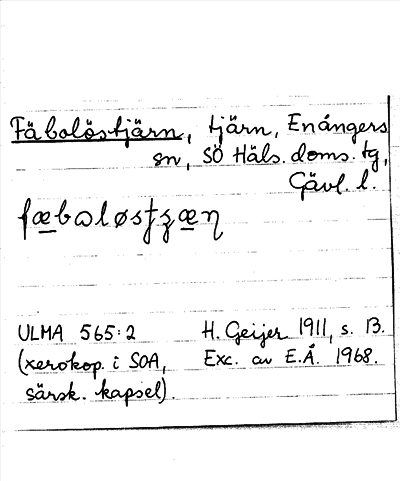 Fäbolöstjärn, tjärn, Enångers
sn, SÖ Häls. doms. tg,
Gävl. l.
fæbωløstʒæɳ
ULMA 565:2 H. Geijer 1911, s. 13.
(xerokop. i SOA, Exc. av E.Å. 1968.
särsk. kapsel).